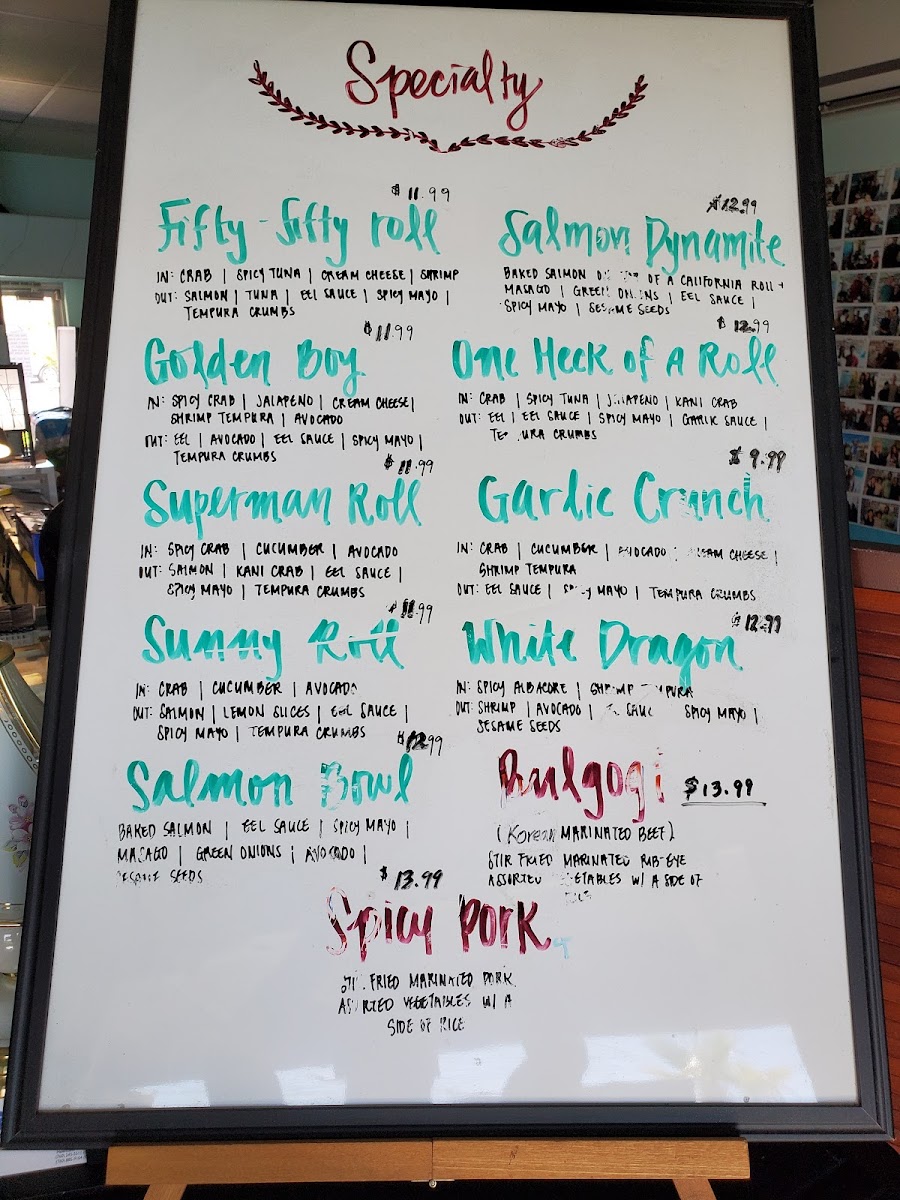 Specialty
$11.99
Fifty-fifty roll
IN: CRAB | SPICY TUNA | CREAM CHEESE | SHRIMP
OUT: SALMON | TUNA | EEL SAUCE | SPICY MAYO |
TEMPURA CRUMBS
$12.99
Salmon Dynamite
BAKED SALMON OF A CALIFORNIA ROLL +
MASAGO | GREEN ONIONS | EEL SAUCE |
SPICY MAYO | SESAME SEEDS
$11.99
Golden Boy
IN: SPICY CRAB | JALAPENO | CREAM CHEESE |
SHRIMP TEMPURA | AVOCADO
OUT: EEL | AVOCADO | EEL SAUCE | SPICY MAYO |
TEMPURA CRUMBS
$12.99
One Heck of A Roll
IN: CRAB | SPICY TUNA | JALAPENO | KANI CRAB
OUT: EEL | EEL SAUCE | SPICY MAYO | GARLIC SAUCE |
TEMPURA CRUMBS
$11.99
Superman Roll
IN: SPICY CRAB | CUCUMBER | AVOCADO
OUT: SALMON | KANI CRAB | EEL SAUCE |
SPICY MAYO | TEMPURA CRUMBS
$9.99
Garlic Crunch
IN: CRAB | CUCUMBER | AVOCADO | CREAM CHEESE |
SHRIMP TEMPURA
OUT: EEL SAUCE | SPICY MAYO | TEMPURA CRUMBS
$11.99
Sunny Roll
IN: CRAB | CUCUMBER | AVOCADO
OUT: SALMON | LEMON SLICES | EEL SAUCE |
SPICY MAYO | TEMPURA CRUMBS
$12.99
White Dragon
IN: SPICY ALBACORE | SHRIMP TEMPURA
OUT: SHRIMP | AVOCADO | SAUCE SPICY MAYO |
SESAME SEEDS
$12.99
Salmon Bowl
BAKED SALMON | EEL SAUCE | SPICY MAYO |
MASAGO | GREEN ONIONS | AVOCADO |
SESAME SEEDS
Bulgogi $13.99
(Korean MARINATED BEEF)
STIR FRIED MARINATED RIB-EYE
ASSORTED VEGETABLES W/ A SIDE OF
RICE
$13.99
Spicy Pork
STIR FRIED MARINATED PORK
ASSORTED VEGETABLES W/ A
SIDE OF RICE